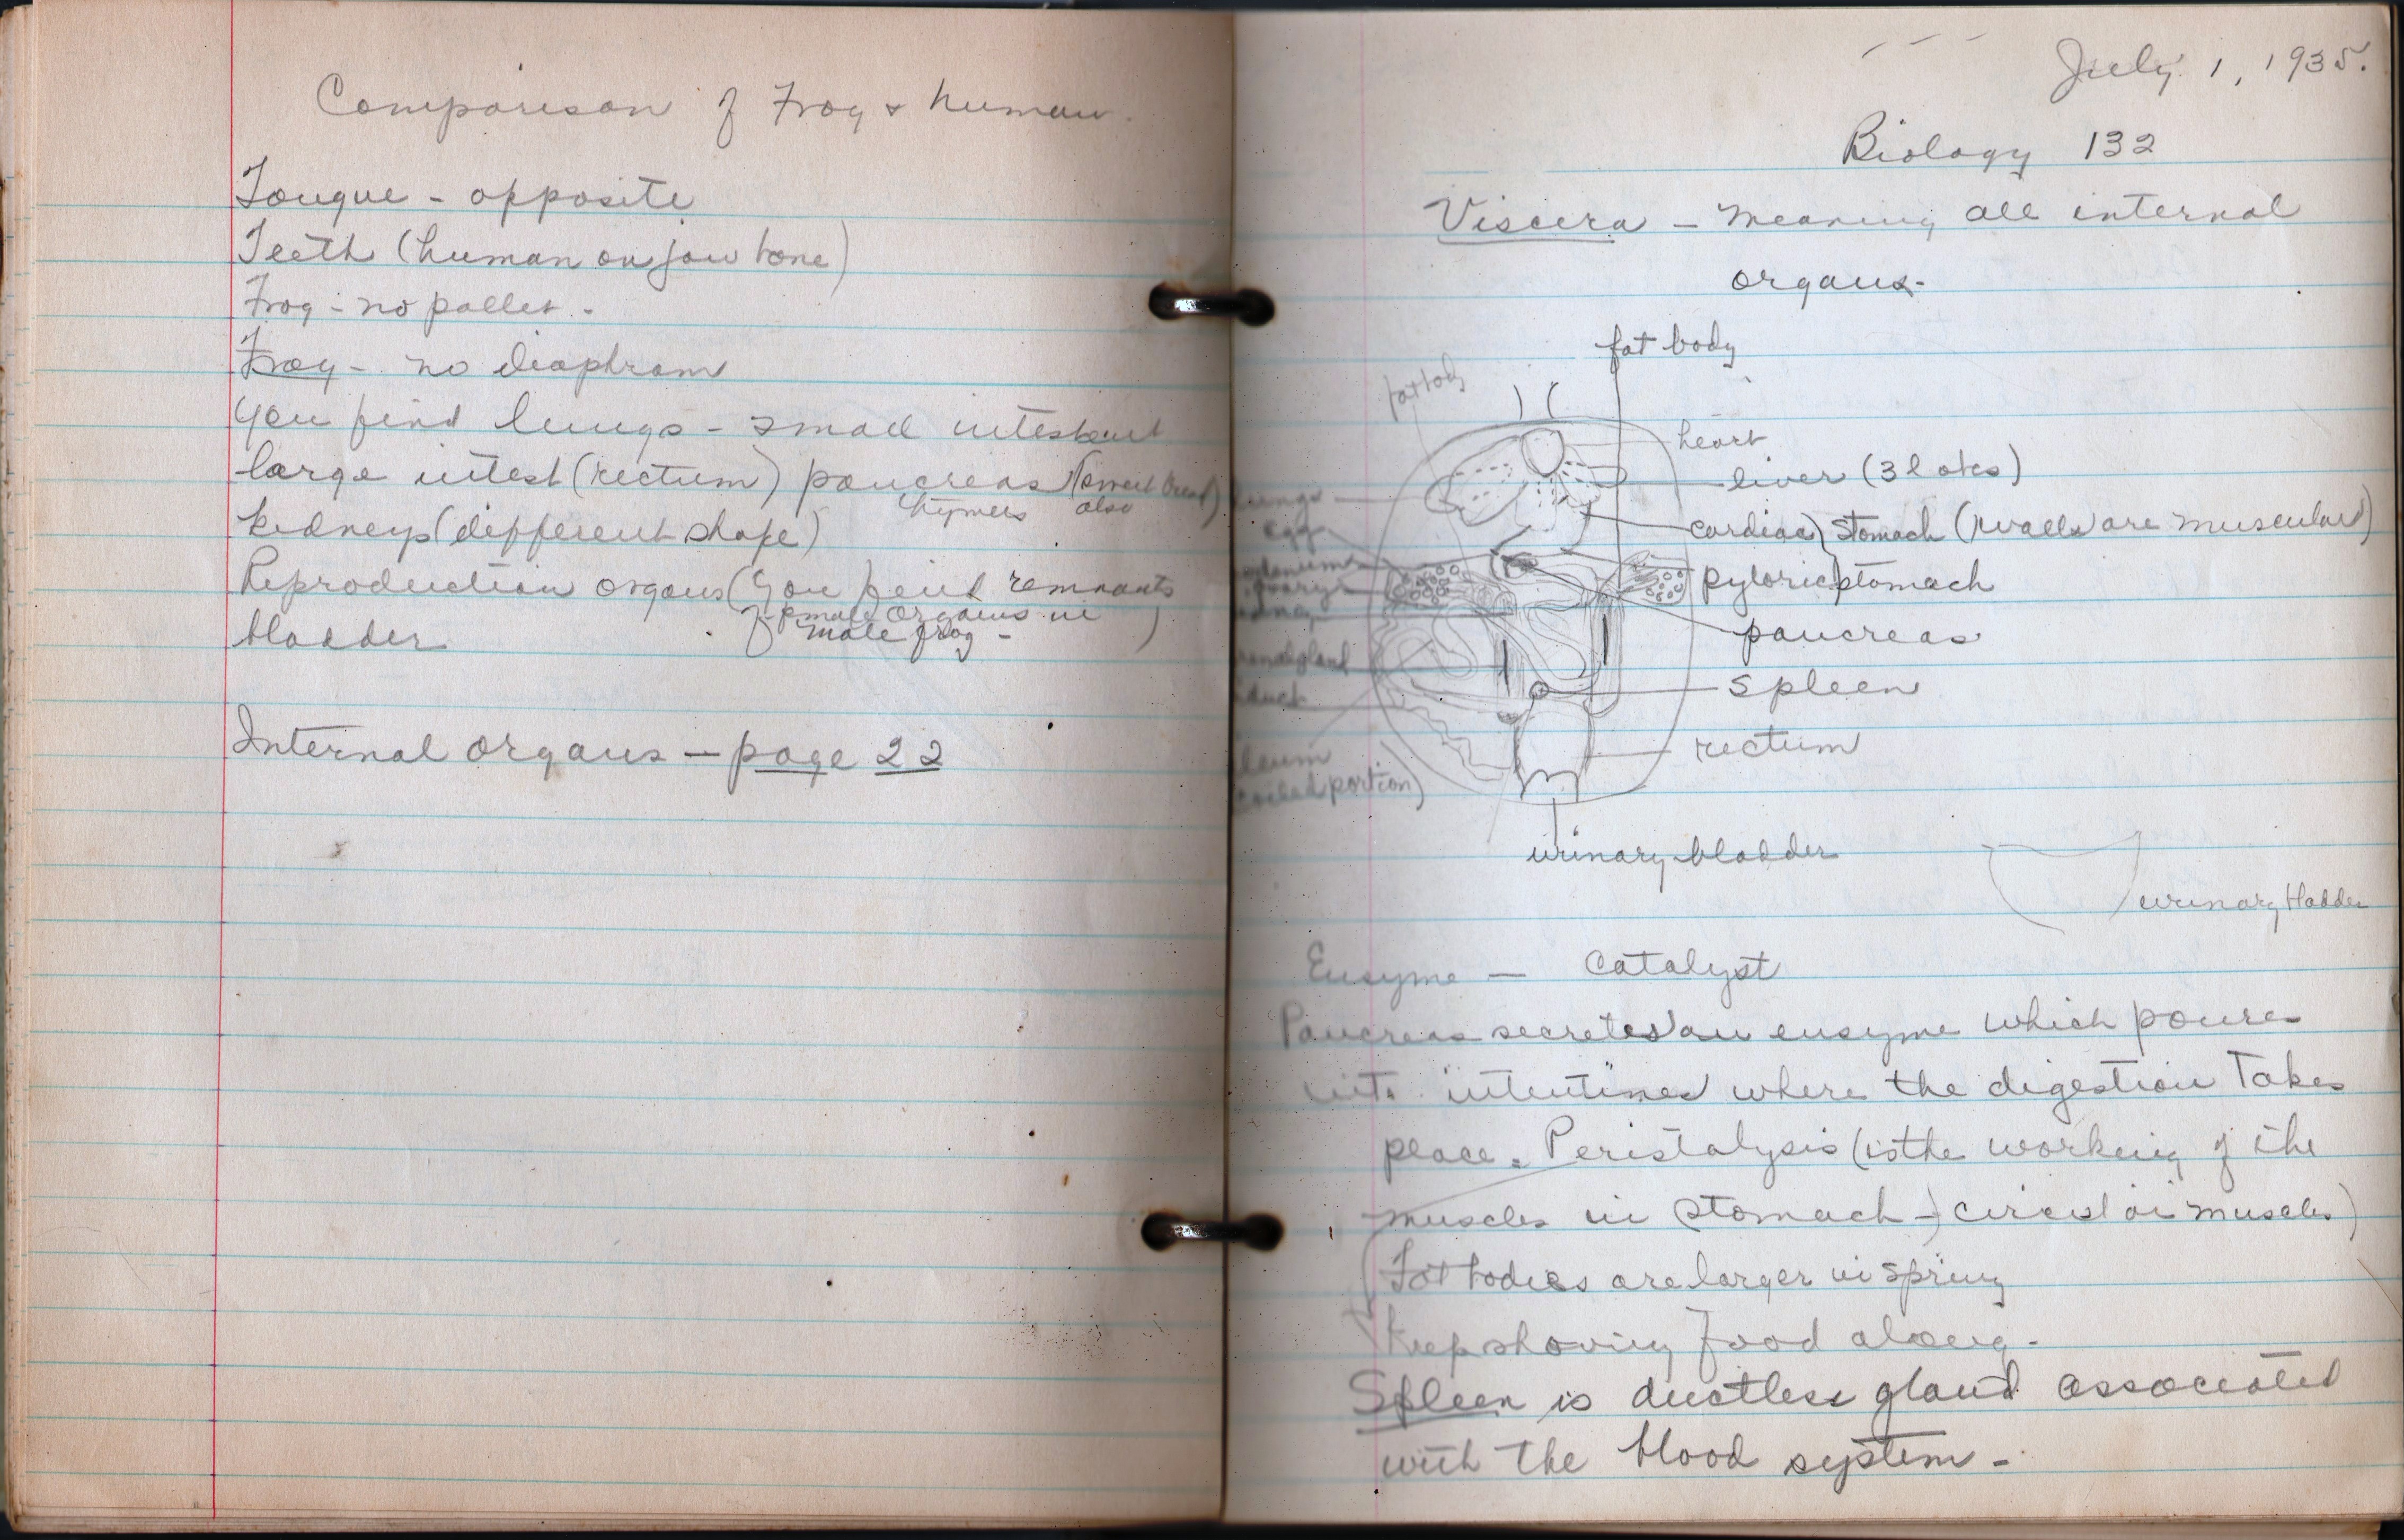 Comparison of Frog & human.
Tongue - opposite
Teeth (human on jaw bone)
Frog - no pallet -
Frog - no diaphram
You find lungs - small
large intest (rectum) pancreas (sweet bread)
thymus also
kidneys (different shape)
Reproduction organs (you find remnants
of female organs in
bladder male frog - )
Internal organs - page 22
July 1, 1935.
Biology 132
Viscera - Meaning all internal
organs-
fat body
fat body
heart
liver (3 lobes)
lungs
cardiac) stomach (walls are muscular)
egg
pyloric stomach
ovary
pancreas
gland
spleen
duct
rectum
ileum
(coiled portion)
urinary bladder
urinary bladder
Ensyme - Catalyst
Pancreas secretes an ensyme which pours
into intentines where the digestion Takes
place. Peristalysis (is the working of the
muscles in stomach - muscles)
Fat bodies are larger in spring
Keep shoving food along -
Spleen is ductless gland associated
with the blood system -